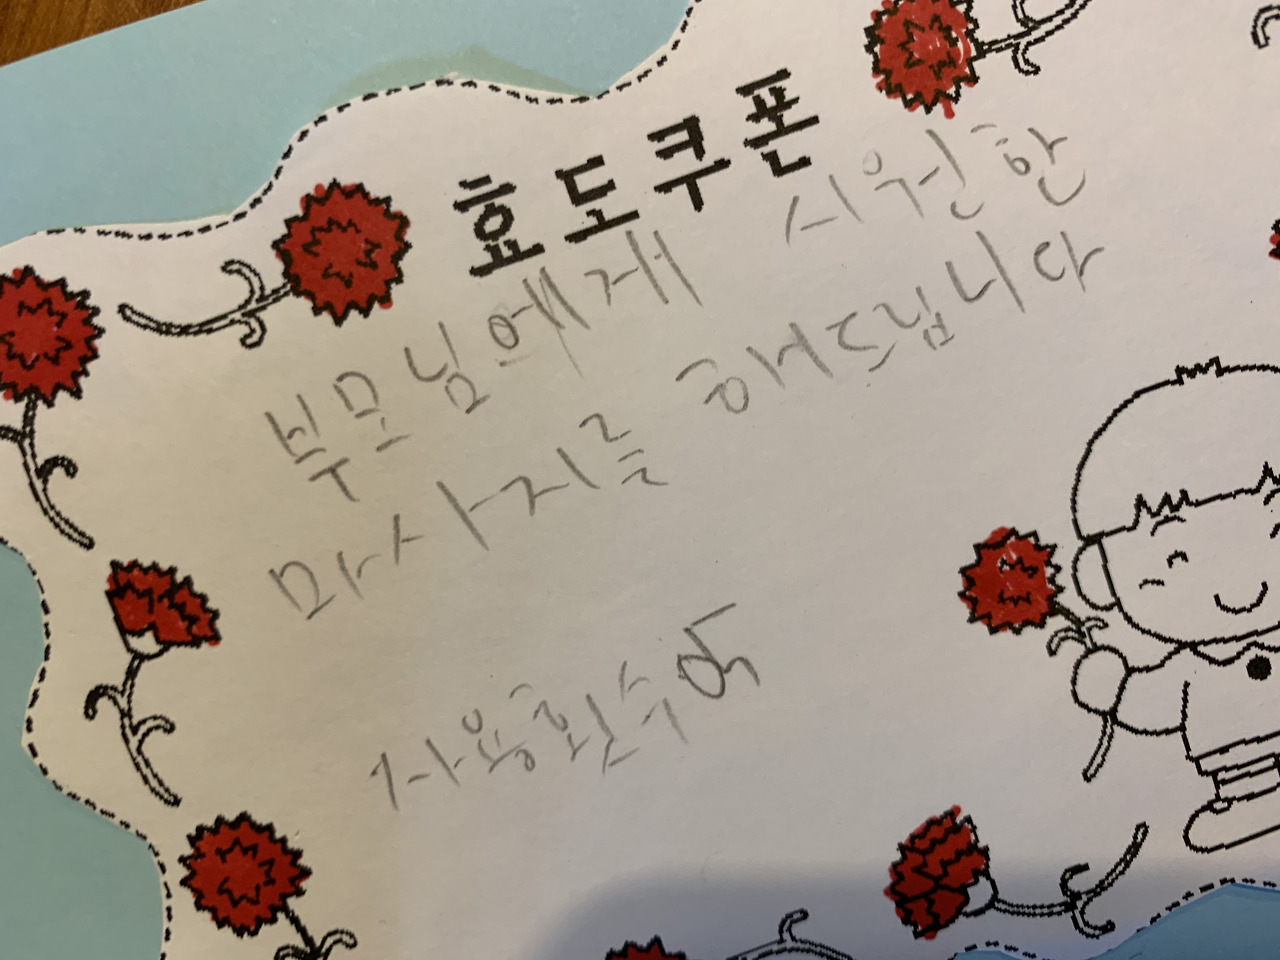 효도쿠폰
부모님에게 시원한
마사지를 해드립니다
사용횟수